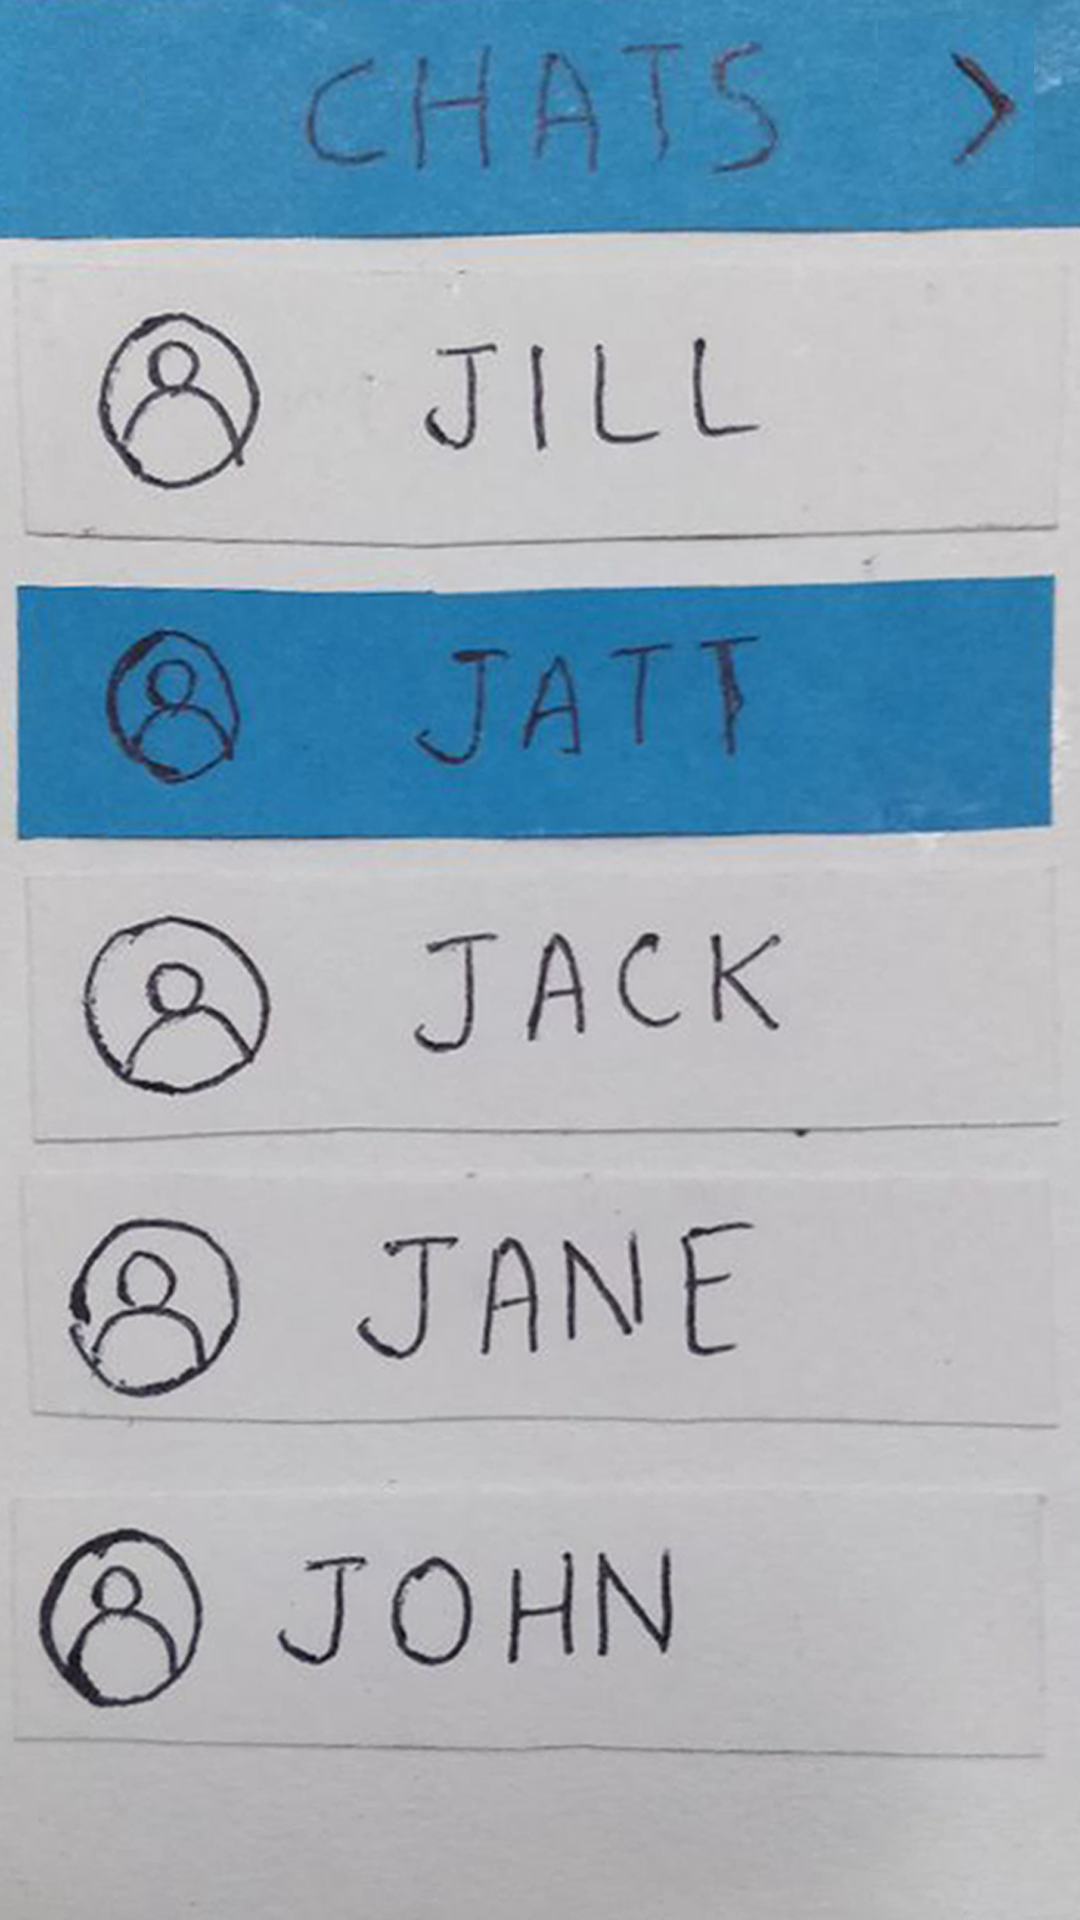 CHATS >
JILL
JATT
JACK
JANE
JOHN